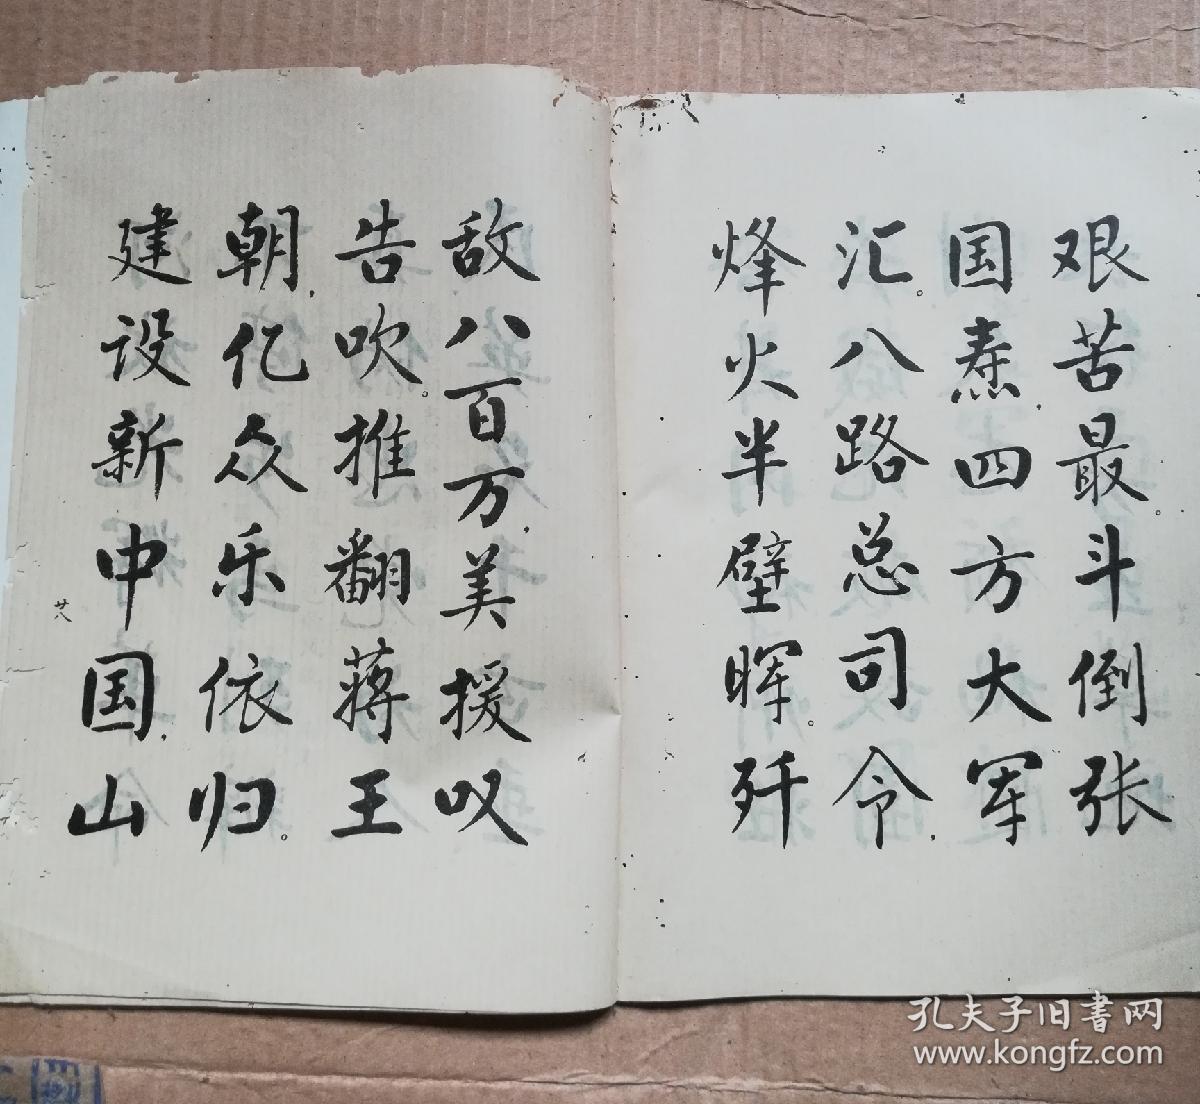 艰苦最。斗倒张
国焘,四方大军
汇。八路总司令,
烽火半壁晖。歼
敌八百万,美援叹
告吹。推翻蒋王
朝,亿众乐依归。
建设新中国,山
廿八
孔夫子旧书网
www.kongfz.com